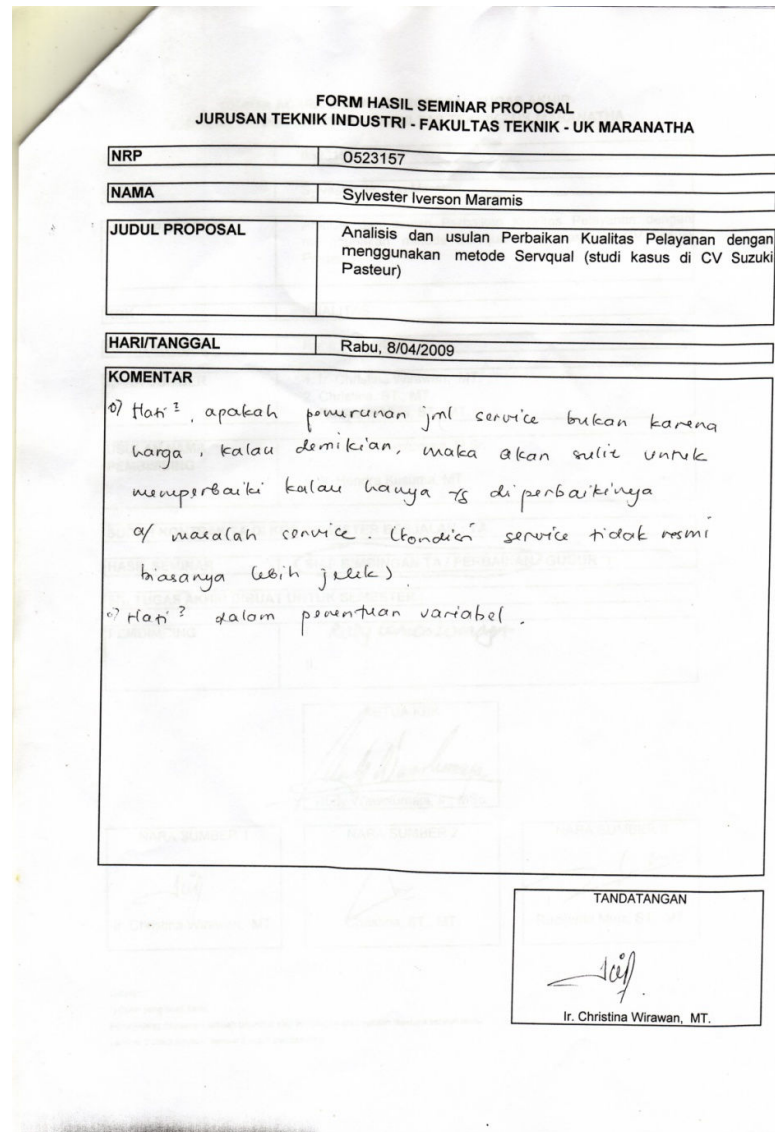 FORM HASIL SEMINAR PROPOSAL
JURUSAN TEKNIK INDUSTRI - FAKULTAS TEKNIK - UK MARANATHA
NRP 0523157
NAMA Sylvester Iverson Maramis
JUDUL PROPOSAL Analisis dan usulan Perbaikan Kualitas Pelayanan dengan
menggunakan metode Servqual (studi kasus di CV Suzuki
Pasteur)
HARI/TANGGAL Rabu, 8/04/2009
KOMENTAR
o) Hati², apakah penurunan jml service bukan karena
harga, kalau demikian, maka akan sulit untuk
memperbaiki kalau hanya yg diperbaikinya
a/ masalah service. (kondisi service tidak resmi
biasanya lebih jelek).
o) Hati² dalam penentuan variabel.
TANDATANGAN
Ir. Christina Wirawan, MT.